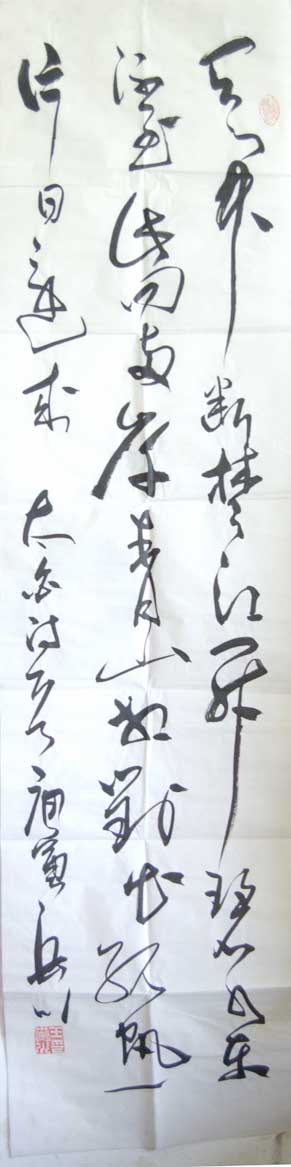 天门中断楚江開碧水东
流至此回两岸青山相對出孤帆一
片日邊来 太白诗 庚寅 岳川